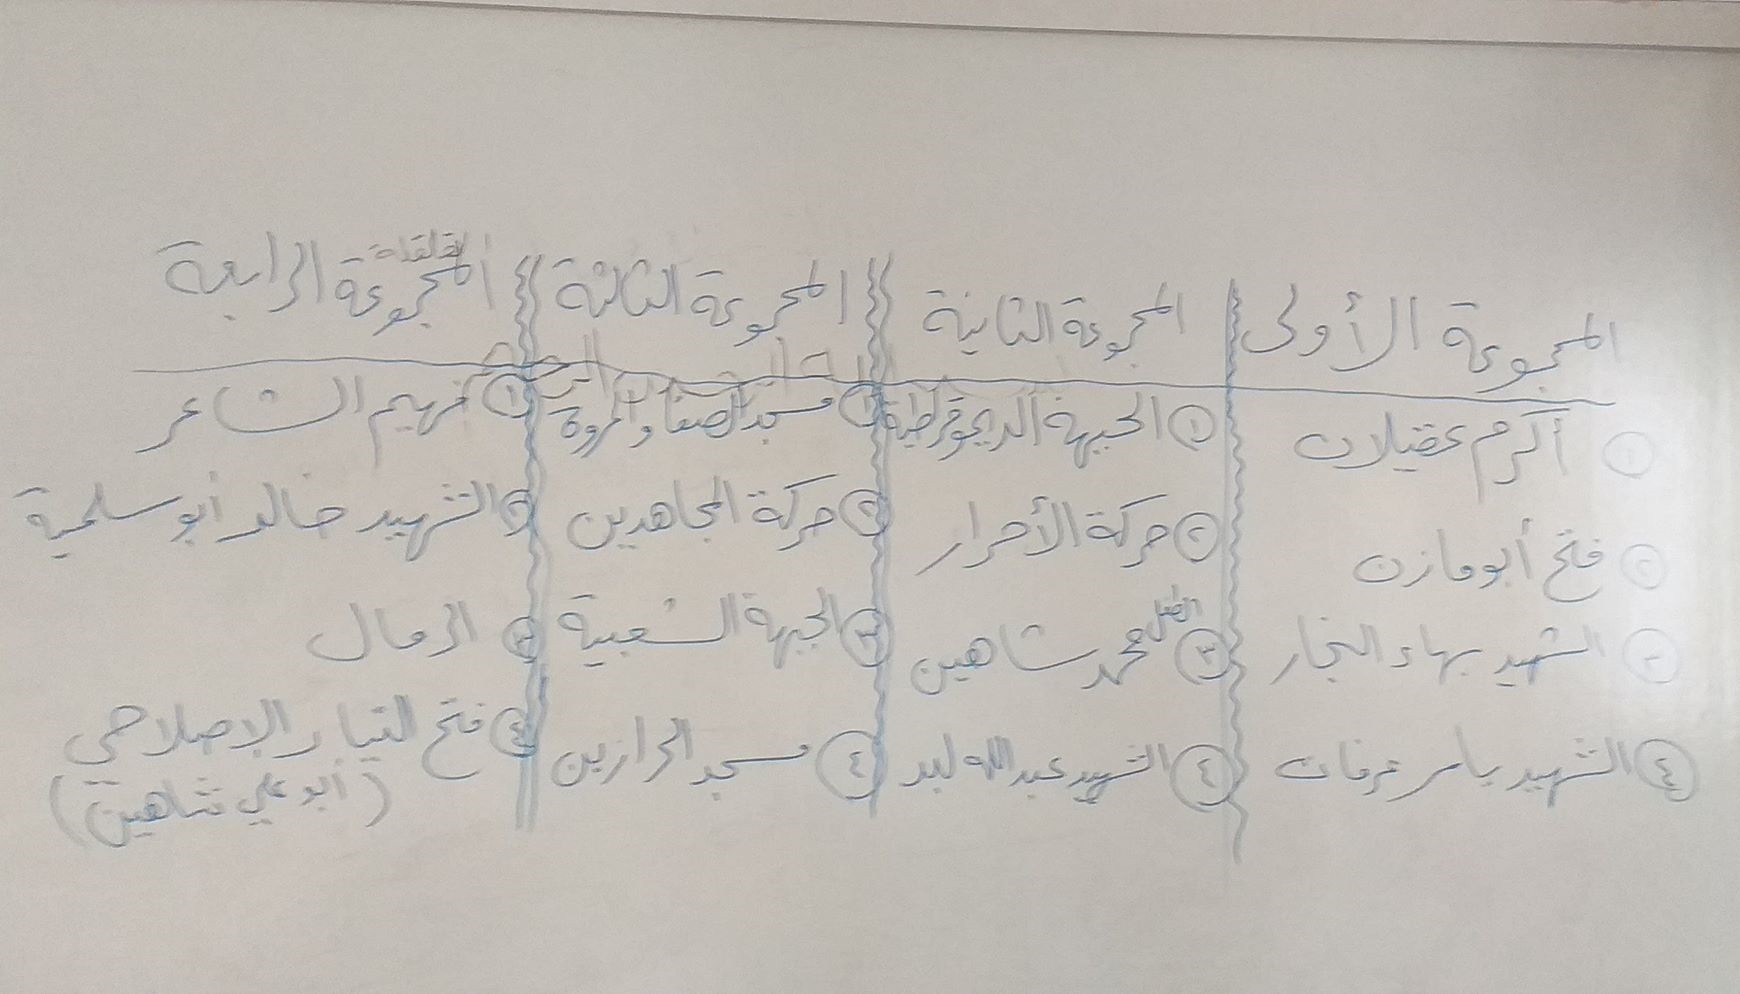 المجموعة الأولى
① أكرم عقيلان
② فتح أبو مازن
③ الشهيد بهاء النجار
④ الشهيد ياسر عرفات
المجموعة الثانية
① الجبهة الديموقراطية
② حركة الأحرار
③ الطفل محمد شاهين
④ الشهيد عبد الله لبد
المجموعة الثالثة
① مسجد الصفا والمروة
② حركة المجاهدين
③ الجبهة الشعبية
④ مسجد الحرازين
المجموعة الرابعة
① فهيم الشاعر
② الشهيد خالد أبو سلمية
③ الرمال
④ فتح التيار الإصلاحي
(أبو علي شاهين)